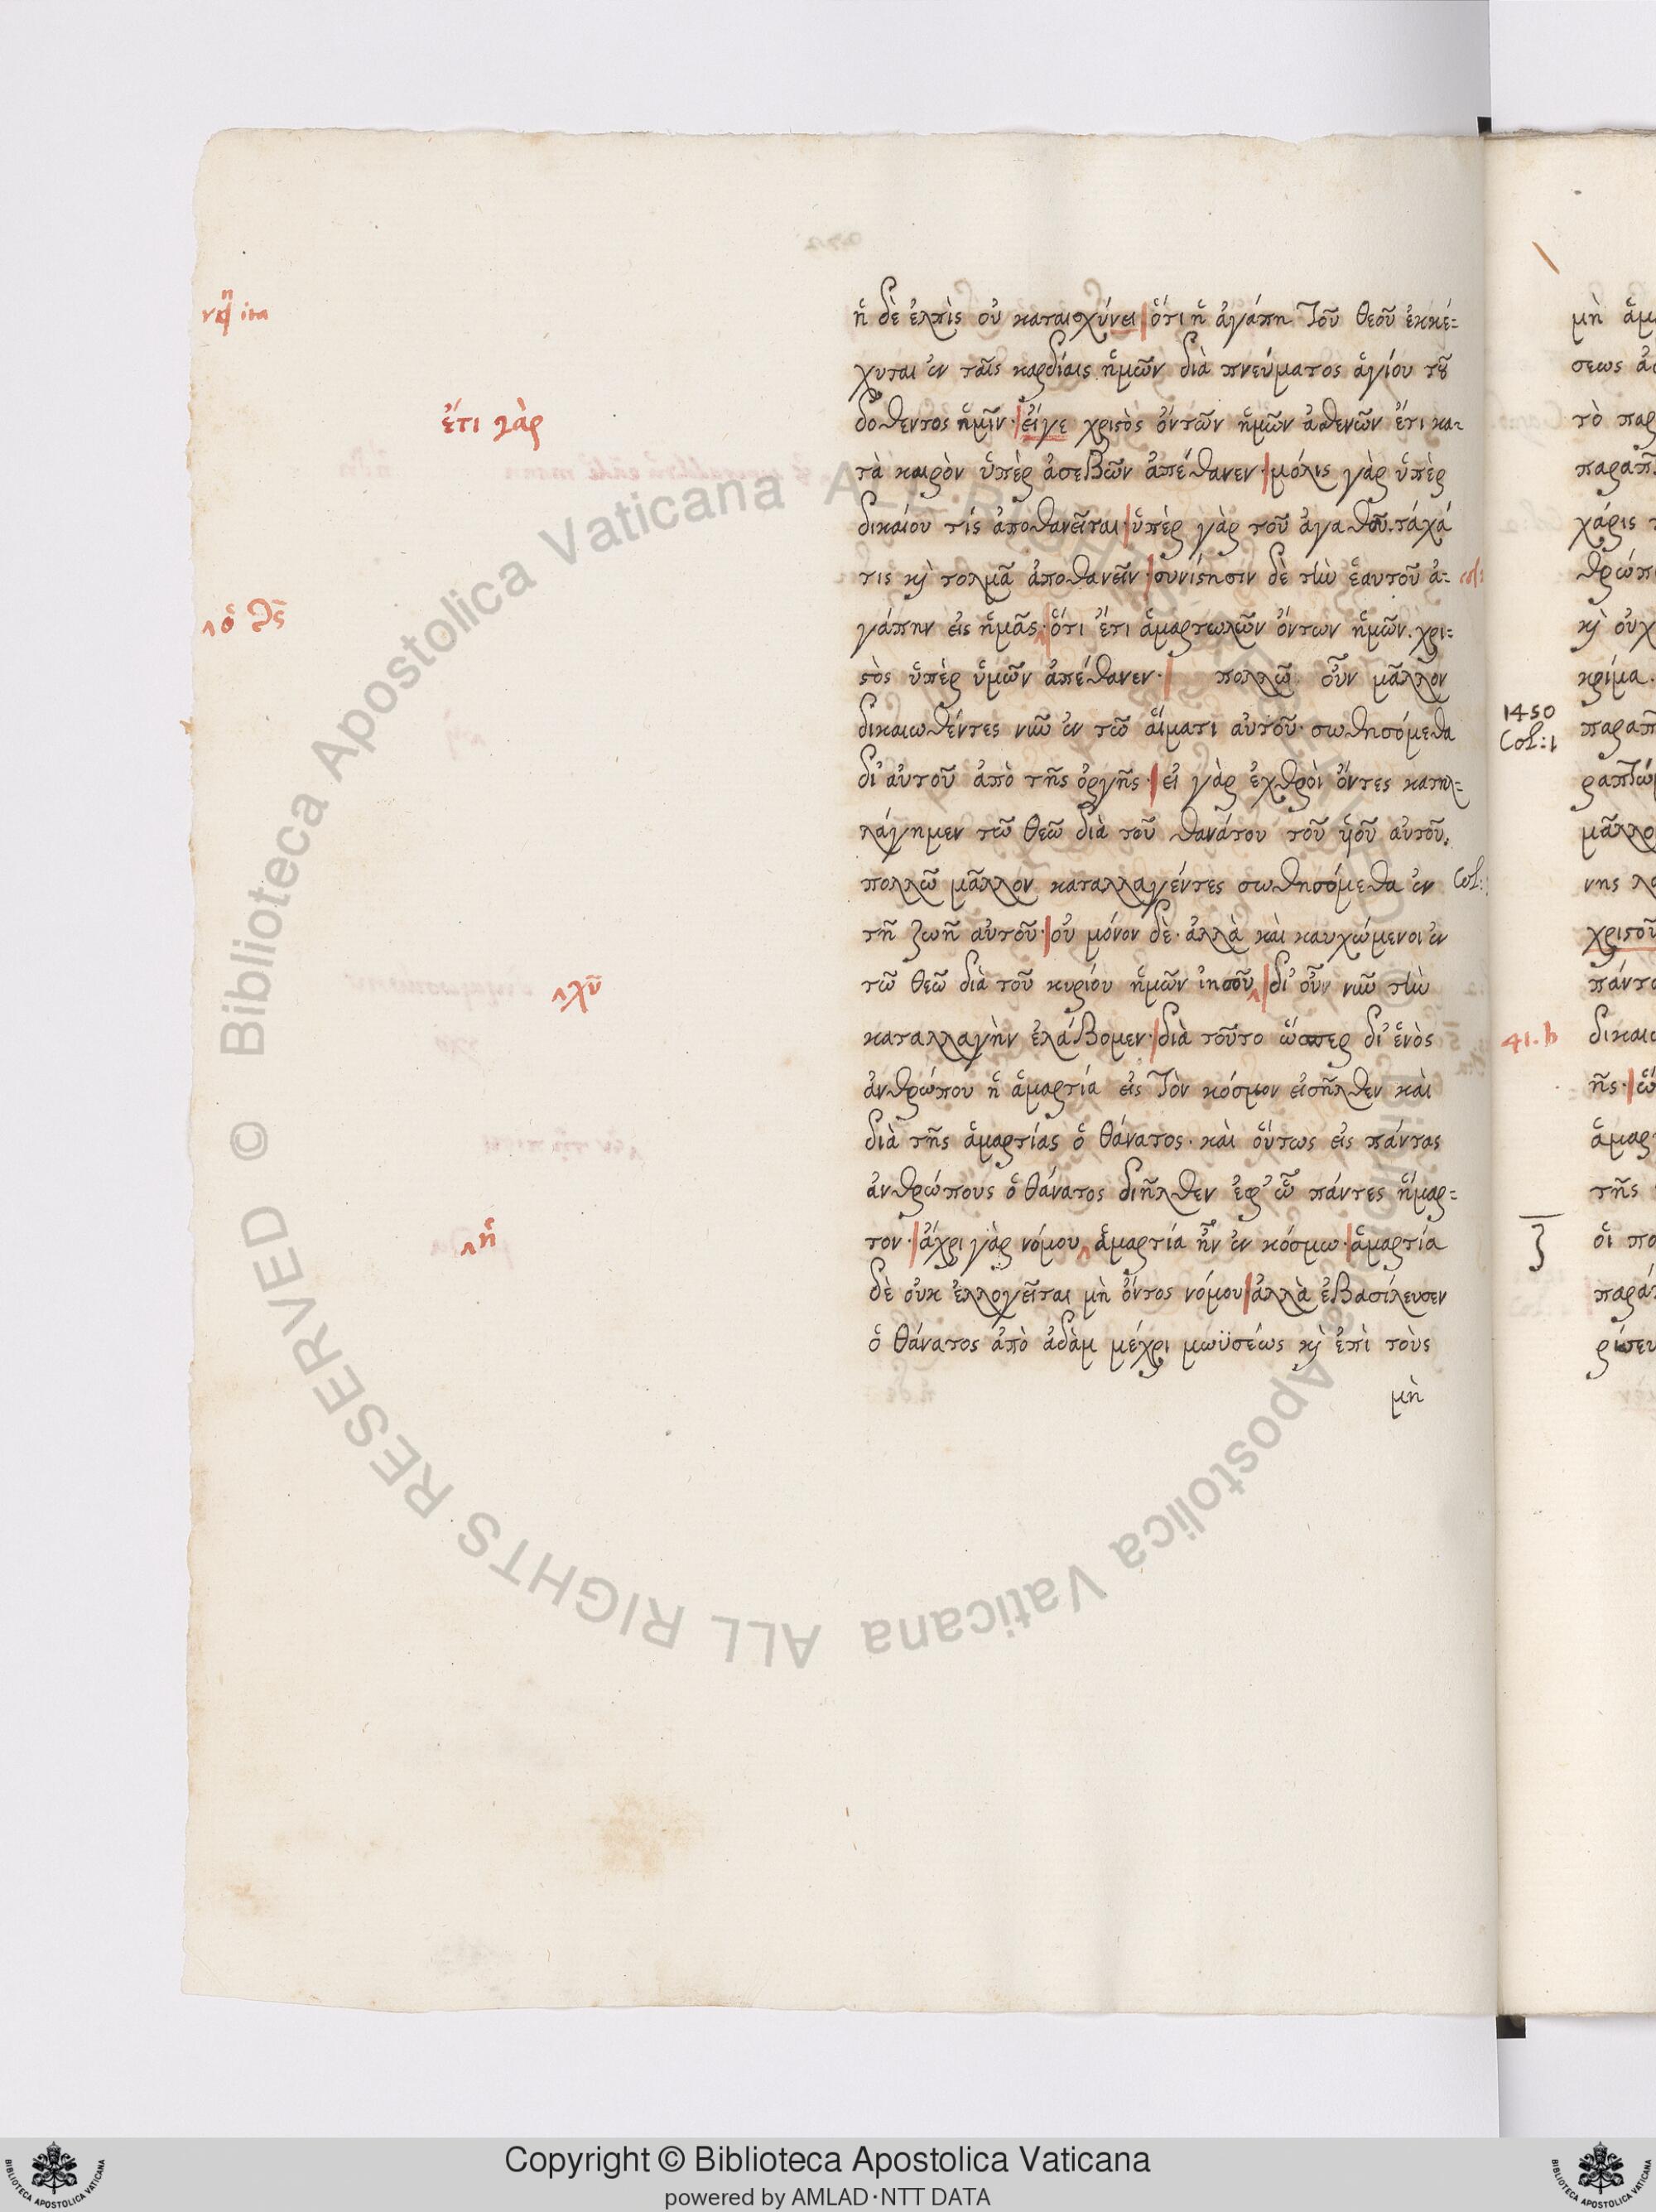 ἡ δὲ ἐλπὶς οὐ καταισχύνει ὅτι ἡ ἀγάπη τοῦ θεοῦ ἐκκέ-
χυται ἐν ταῖς καρδίαις ἡμῶν διὰ πνεύματος ἁγίου τοῦ
δοθεντος ἡμῖν· εἴγε χριστὸς ὄντων ἡμῶν ἀσθενῶν ἔτι κα-
τὰ καιρὸν ὑπὲρ ἀσεβῶν ἀπέθανεν· μόλις γὰρ ὑπὲρ
δικαίου τίς ἀποθανεῖται· ὑπὲρ γὰρ τοῦ ἀγαθοῦ. τάχά
τις κὶ τολμᾶ ἀποθανεῖν· συνίστησιν δὲ τὴν ἑαυτοῦ ἀ-
γάπην εἰς ἡμᾶς· ὅτι ἔτι ἁμαρτωλῶν ὄντων ἡμῶν. χρι-
στὸς ὑπὲρ ὑμῶν ἀπέθανεν· πολλῶ οὖν μᾶλλον
δικαιωθέντες νῦν ἐν τῶ αἵματι αὐτοῦ· σωθησόμεθα
δι' αὐτοῦ ἀπὸ τῆς ὀργῆς· εἰ γὰρ ἐχθροὶ ὄντες κατηλ-
λάγημεν τῶ θεῶ διὰ τοῦ θανάτου τοῦ υἱοῦ αὐτοῦ.
πολλῶ μᾶλλον καταλλαγέντες σωθησόμεθα ἐν
τῆ ζωῆ αὐτοῦ· οὐ μόνον δὲ· ἀλλὰ καὶ καυχώμενοι ἐν
τῶ θεῶ διὰ τοῦ κυρίου ἡμῶν ἰησοῦ δι' οὗν νῦν τὴν
καταλλαγὴν ἐλάβομεν· διὰ τοῦτο ὥσπερ δι' ἑνὸς
ἀνθρώπου ἡ ἁμαρτία εἰς τὸν κόσμον εἰσῆλθεν καὶ
διὰ τῆς ἁμαρτίας ὁ θάνατος· καὶ οὕτως εἰς πάντας
ἀνθρώπους ὁ θάνατος διῆλθεν ἐφ' ᾧ πάντες ἥμαρ-
τον· ἄχρι γὰρ νόμου ἁμαρτία ἦν ἐν κόσμω· ἁμαρτία
δὲ οὐκ ἐλλογεῖται μὴ ὄντος νόμου ἀλλὰ ἐβασίλευσεν
ὁ θάνατος ἀπὸ ἀδὰμ μέχρι μωϋσέως κὶ ἐπὶ τοὺς
μὴ
ἔτι γὰρ
ὁ θς
χῦ
ἡ
col:
Col:
1450
Col: 1
41. b
μὴ
σεως
τὸ
χάρις
κὶ οὐχ
κρίμα.
νης
χριστοῦ
τῆς
οἱ
Copyright © Biblioteca Apostolica Vaticana
powered by AMLAD·NTT DATA
© Biblioteca Apostolica Vaticana ALL RIGHTS RESERVED